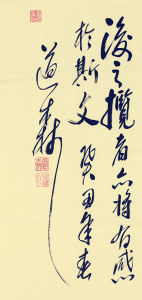 後之攬者亦将有感
於斯文 癸丑年春
道森